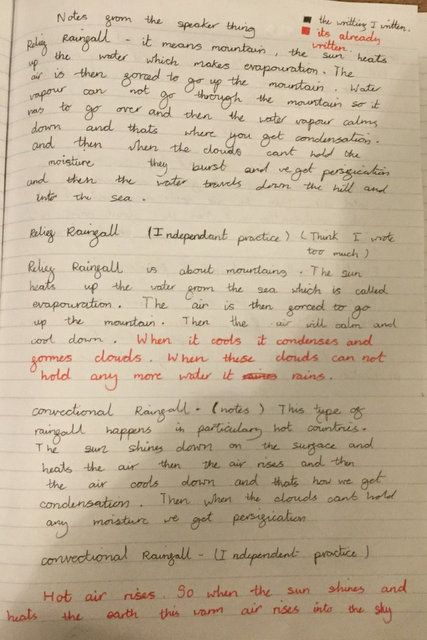 Notes from the speaker thing
the writting I written.
its already written.
Relief Rainfall - it means mountain, the sun heats
up the water which makes evapouration. The
air is then forced to go up the mountain. Water
vapour can not go through the mountain so it
has to go over and then the water vapour calms
down and thats where you get condensation.
and then when the clouds cant hold the
moisture they burst and we get persipication
and then the water travels down the hill and
into the sea.
Relief Rainfall (Independant practice) (Think I wrote
too much)
Relief Rainfall is about mountains. The sun
heats up the water from the sea which is called
evapouration. The air is then forced to go
up the mountain. Then the air will calm and
cool down. When it cools it condenses and
formes clouds. When these clouds can not
hold any more water it raines rains.
convectional Rainfall - (notes) This type of
rainfall happens in particulary hot countries.
The sun shines down on the surface and
heats the air then the air rises and then
the air cools down and thats how we get
condensation. Then when the clouds cant hold
any moisture we get persipication
convectional Rainfall - (Independent practice)
Hot air rises. So when the sun shines and
heats the earth this warm air rises into the sky